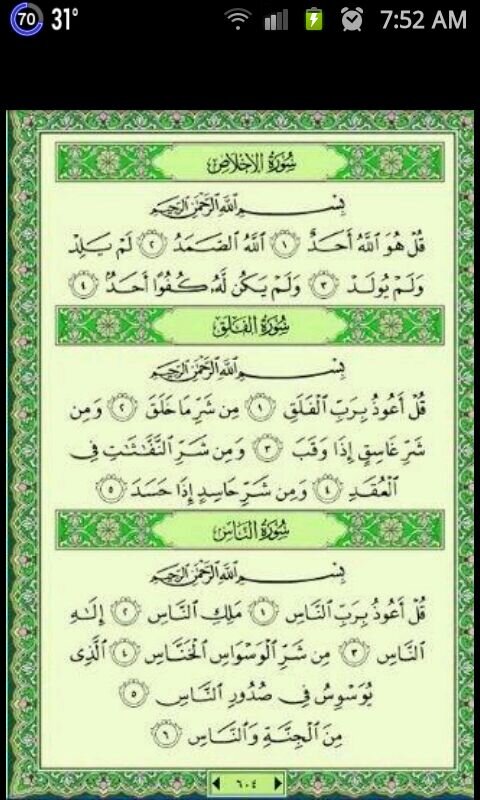 70 31° 7:52 AM
سُورَةُ الإِخْلَاصِ
بِسْمِ اللَّهِ الرَّحْمَٰنِ الرَّحِيمِ
قُلْ هُوَ اللَّهُ أَحَدٌ ١ اللَّهُ الصَّمَدُ ٢ لَمْ يَلِدْ
وَلَمْ يُولَدْ ٣ وَلَمْ يَكُن لَّهُۥ كُفُوًا أَحَدٌۢ ٤
سُورَةُ الفَلَقِ
بِسْمِ اللَّهِ الرَّحْمَٰنِ الرَّحِيمِ
قُلْ أَعُوذُ بِرَبِّ الْفَلَقِ ١ مِن شَرِّ مَا خَلَقَ ٢ وَمِن
شَرِّ غَاسِقٍ إِذَا وَقَبَ ٣ وَمِن شَرِّ النَّفَّـٰثَـٰتِ فِى
الْعُقَدِ ٤ وَمِن شَرِّ حَاسِدٍ إِذَا حَسَدَ ٥
سُورَةُ النَّاسِ
بِسْمِ اللَّهِ الرَّحْمَٰنِ الرَّحِيمِ
قُلْ أَعُوذُ بِرَبِّ النَّاسِ ١ مَلِكِ النَّاسِ ٢ إِلَـٰهِ
النَّاسِ ٣ مِن شَرِّ الْوَسْوَاسِ الْخَنَّاسِ ٤ الَّذِى
يُوَسْوِسُ فِى صُدُورِ النَّاسِ ٥
مِنَ الْجِنَّةِ وَالنَّاسِ ٦
٦٠٤